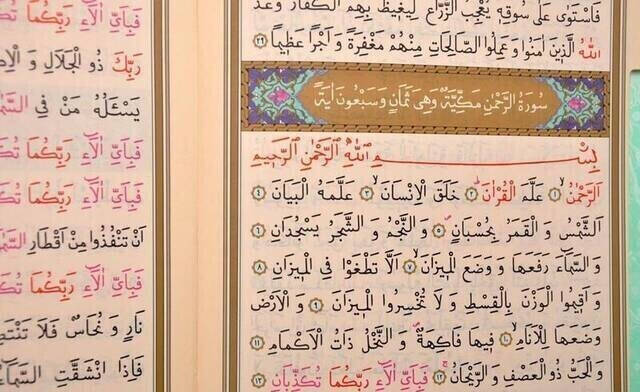 فَاسْتَوٰى عَلٰى سُوقِهٖ يُعْجِبُ الزُّرَّاعَ لِيَغٖيظَ بِهِمُ الْكُفَّارَ وَعَدَ
اللّٰهُ الَّذٖينَ اٰمَنُوا وَ عَمِلُوا الصَّالِحَاتِ مِنْهُمْ مَغْفِرَةً وَ اَجْرًا عَظٖيمًا ٢٩
سُورَةُ الرَّحْمٰنِ مَكِّيَّةٌ وَهِيَ ثَمَانٍ وَسَبْعُونَ اٰيَةً
بِسْمِ اللّٰهِ الرَّحْمٰنِ الرَّحٖيمِ
اَلرَّحْمٰنُ ١ عَلَّمَ الْقُرْاٰنَ ٢ خَلَقَ الْاِنْسَانَ ٣ عَلَّمَهُ الْبَيَانَ ٤
اَلشَّمْسُ وَ الْقَمَرُ بِحُسْبَانٍ ٥ وَ النَّجْمُ وَ الشَّجَرُ يَسْجُدَانِ ٦
وَ السَّمَاءَ رَفَعَهَا وَ وَضَعَ الْمٖيزَانَ ٧ اَلَّا تَطْغَوْا فِي الْمٖيزَانِ ٨
وَ اَقٖيمُوا الْوَزْنَ بِالْقِسْطِ وَ لَا تُخْسِرُوا الْمٖيزَانَ ٩ وَ الْاَرْضَ
وَضَعَهَا لِلْاَنَامِ ١٠ فٖيهَا فَاكِهَةٌ وَ النَّخْلُ ذَاتُ الْاَكْمَامِ ١١
وَ الْحَبُّ ذُو الْعَصْفِ وَ الرَّيْحَانُ ١٢ فَبِاَيِّ اٰلَاءِ رَبِّكُمَا تُكَذِّبَانِ ١٣
فَبِاَيِّ اٰلَاءِ رَبِّكُمَا
رَبِّكَ ذُو الْجَلَالِ وَ
يَسْـَٔلُهُ مَنْ فِي
فَبِاَيِّ اٰلَاءِ رَبِّكُمَا
فَبِاَيِّ اٰلَاءِ رَبِّكُمَا
اَنْ تَنْفُذُوا مِنْ اَقْطَارِ
فَبِاَيِّ اٰلَاءِ رَبِّكُمَا
نَارٍ وَ نُحَاسٌ فَلَا
فَاِذَا انْشَقَّتِ